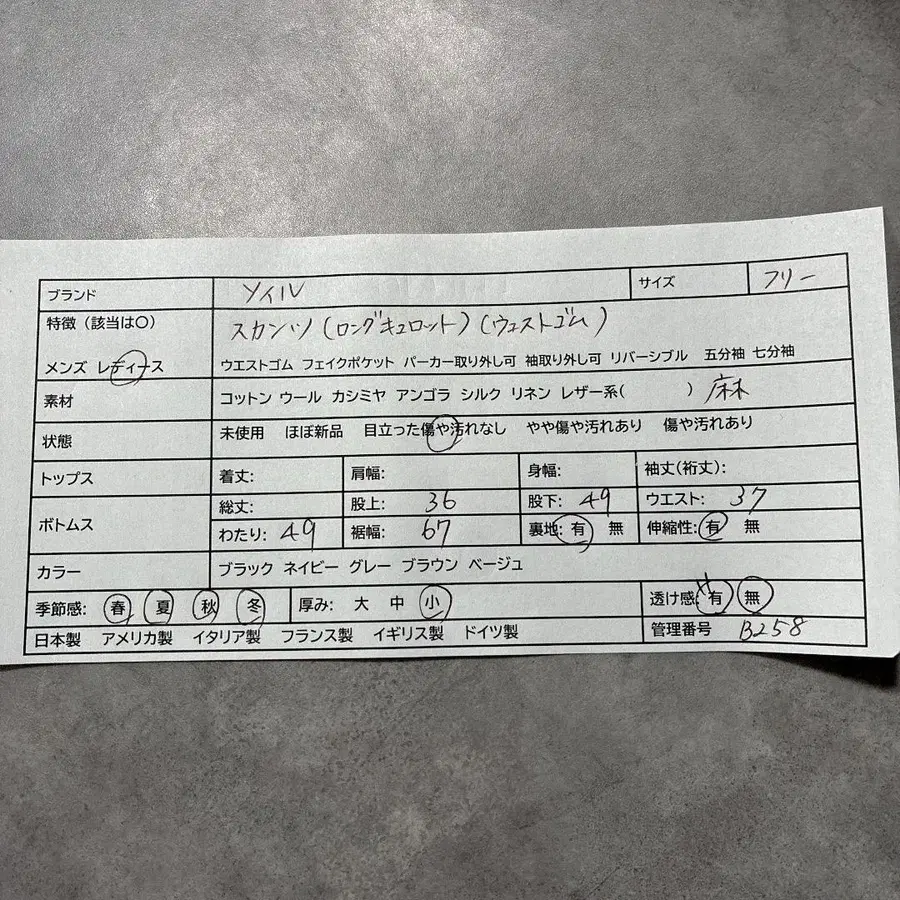 ブランド ソイル サイズ フリー
特徴（該当は〇） スカンツ(ロングキュロット)(ウエストゴム)
メンズ レディース ウエストゴム フェイクポケット パーカー取り外し可 袖取り外し可 リバーシブル 五分袖 七分袖
素材 コットン ウール カシミヤ アンゴラ シルク リネン レザー系( ) 麻
状態 未使用 ほぼ新品 目立った傷や汚れなし やや傷や汚れあり 傷や汚れあり
トップス 着丈: 肩幅: 身幅: 袖丈(裄丈):
ボトムス 総丈: 股上: 36 股下: 49 ウエスト: 37
わたり: 49 裾幅: 67 裏地: 有 無 伸縮性: 有 無
カラー ブラック ネイビー グレー ブラウン ベージュ
季節感: 春 夏 秋 冬 厚み: 大 中 小 透け感: 有 無
日本製 アメリカ製 イタリア製 フランス製 イギリス製 ドイツ製 管理番号 B258